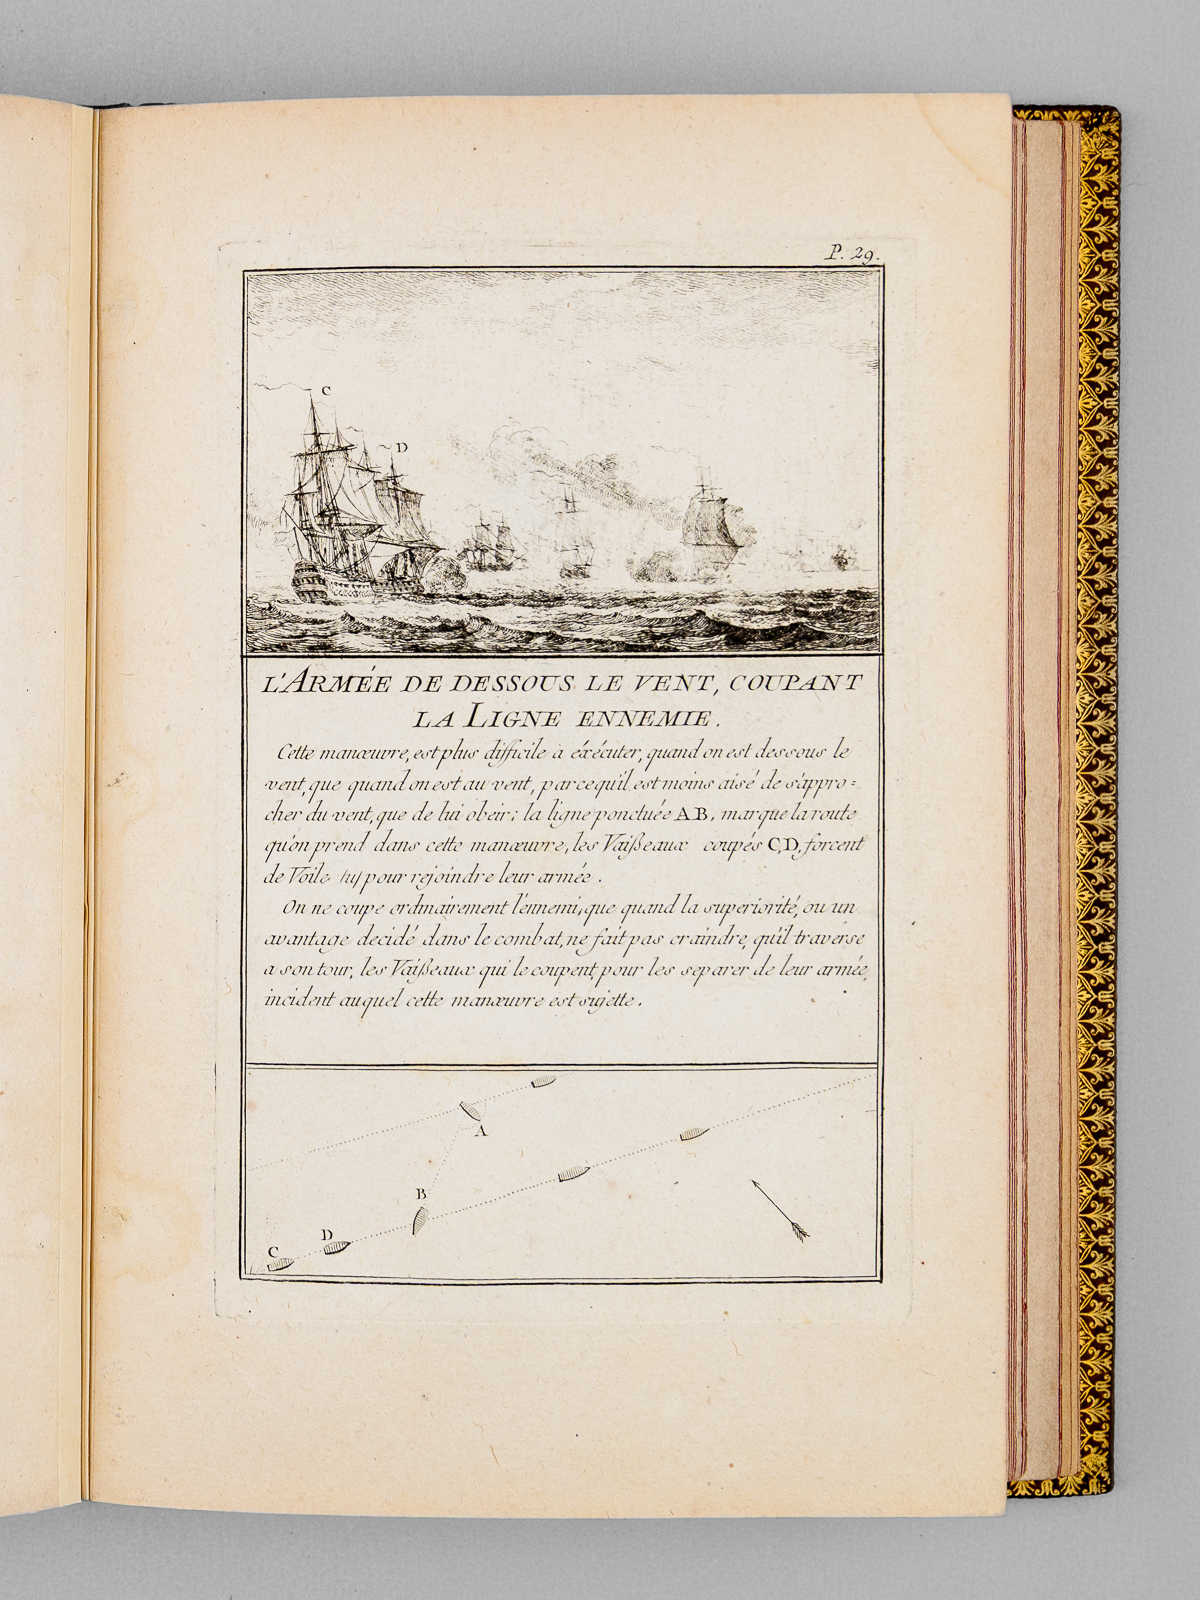 P. 29.
C
D
L'ARMÉE DE DESSOUS LE VENT, COUPANT
LA LIGNE ENNEMIE.
Cette manœuvre, est plus difficile à éxécuter, quand on est dessous le
vent, que quand on est au vent, parcequ'il est moins aisé de s'appro=
cher du vent, que de lui obeir; la ligne ponctuée AB, marque la route
qu'on prend dans cette manœuvre, les Vaißeaux coupés C, D, forcent
de Voile (u) pour rejoindre leur armée.
On ne coupe ordinairement l'énnemi, que quand la superiorité, ou un
avantage decidé dans le combat, ne fait pas craindre, qu'il traverse
a son tour, les Vaißeaux qui le coupent, pour les separer de leur armée,
incident auquel cette manœuvre est sujette.
A
B
D
C